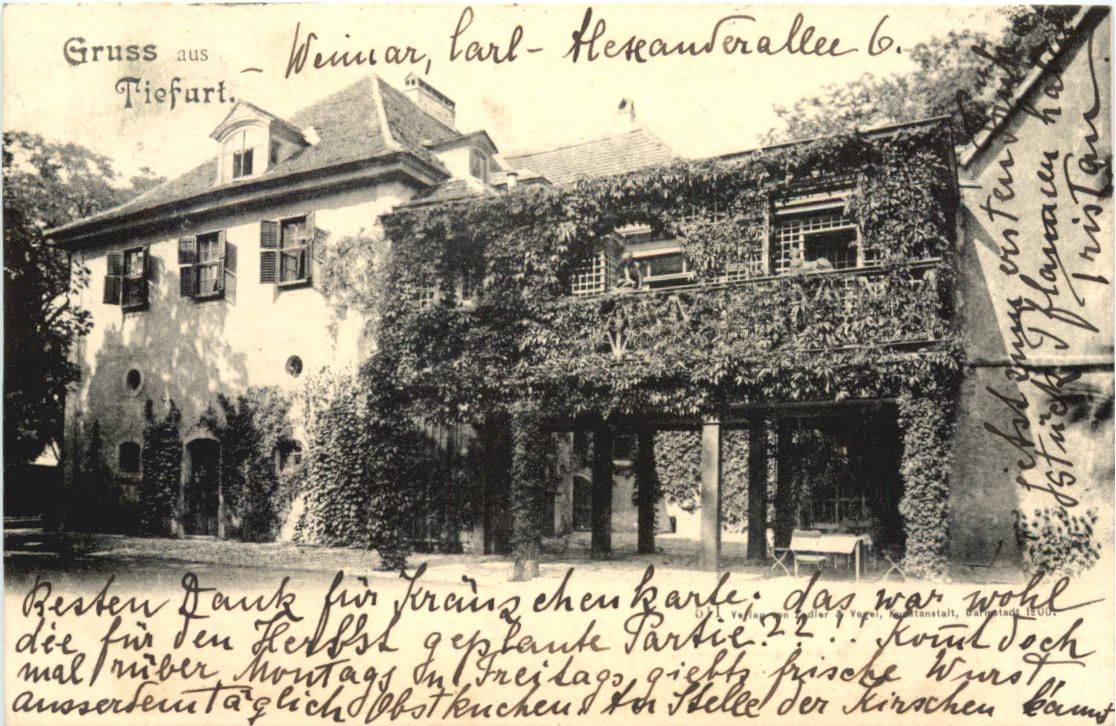 Gruss aus
Tiefurt.
– Weimar, Carl- Alexanderallee 6.
Besten Dank für Kränzchenkarte. das war wohl
511 Verlag von Zedler & Vogel, Kunstanstalt, Darmstadt 1900.
die für den Herbst geplante Partie?? !! Komt doch
mal rüber, Montags u Freitags giebts frische Wurst,
ausserdem täglich Obstkuchen. An Stelle der Kirschen
jetzt zum ersten
Pflaumen
Tristan